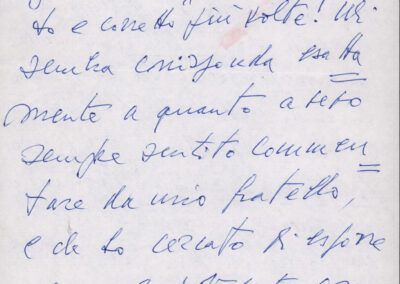 to e corretto più volte! Mi
sembra corrisponda esatta
mente a quanto avevo
sempre sentito commen
tare da mio fratello,
e che ho cercato di esporre